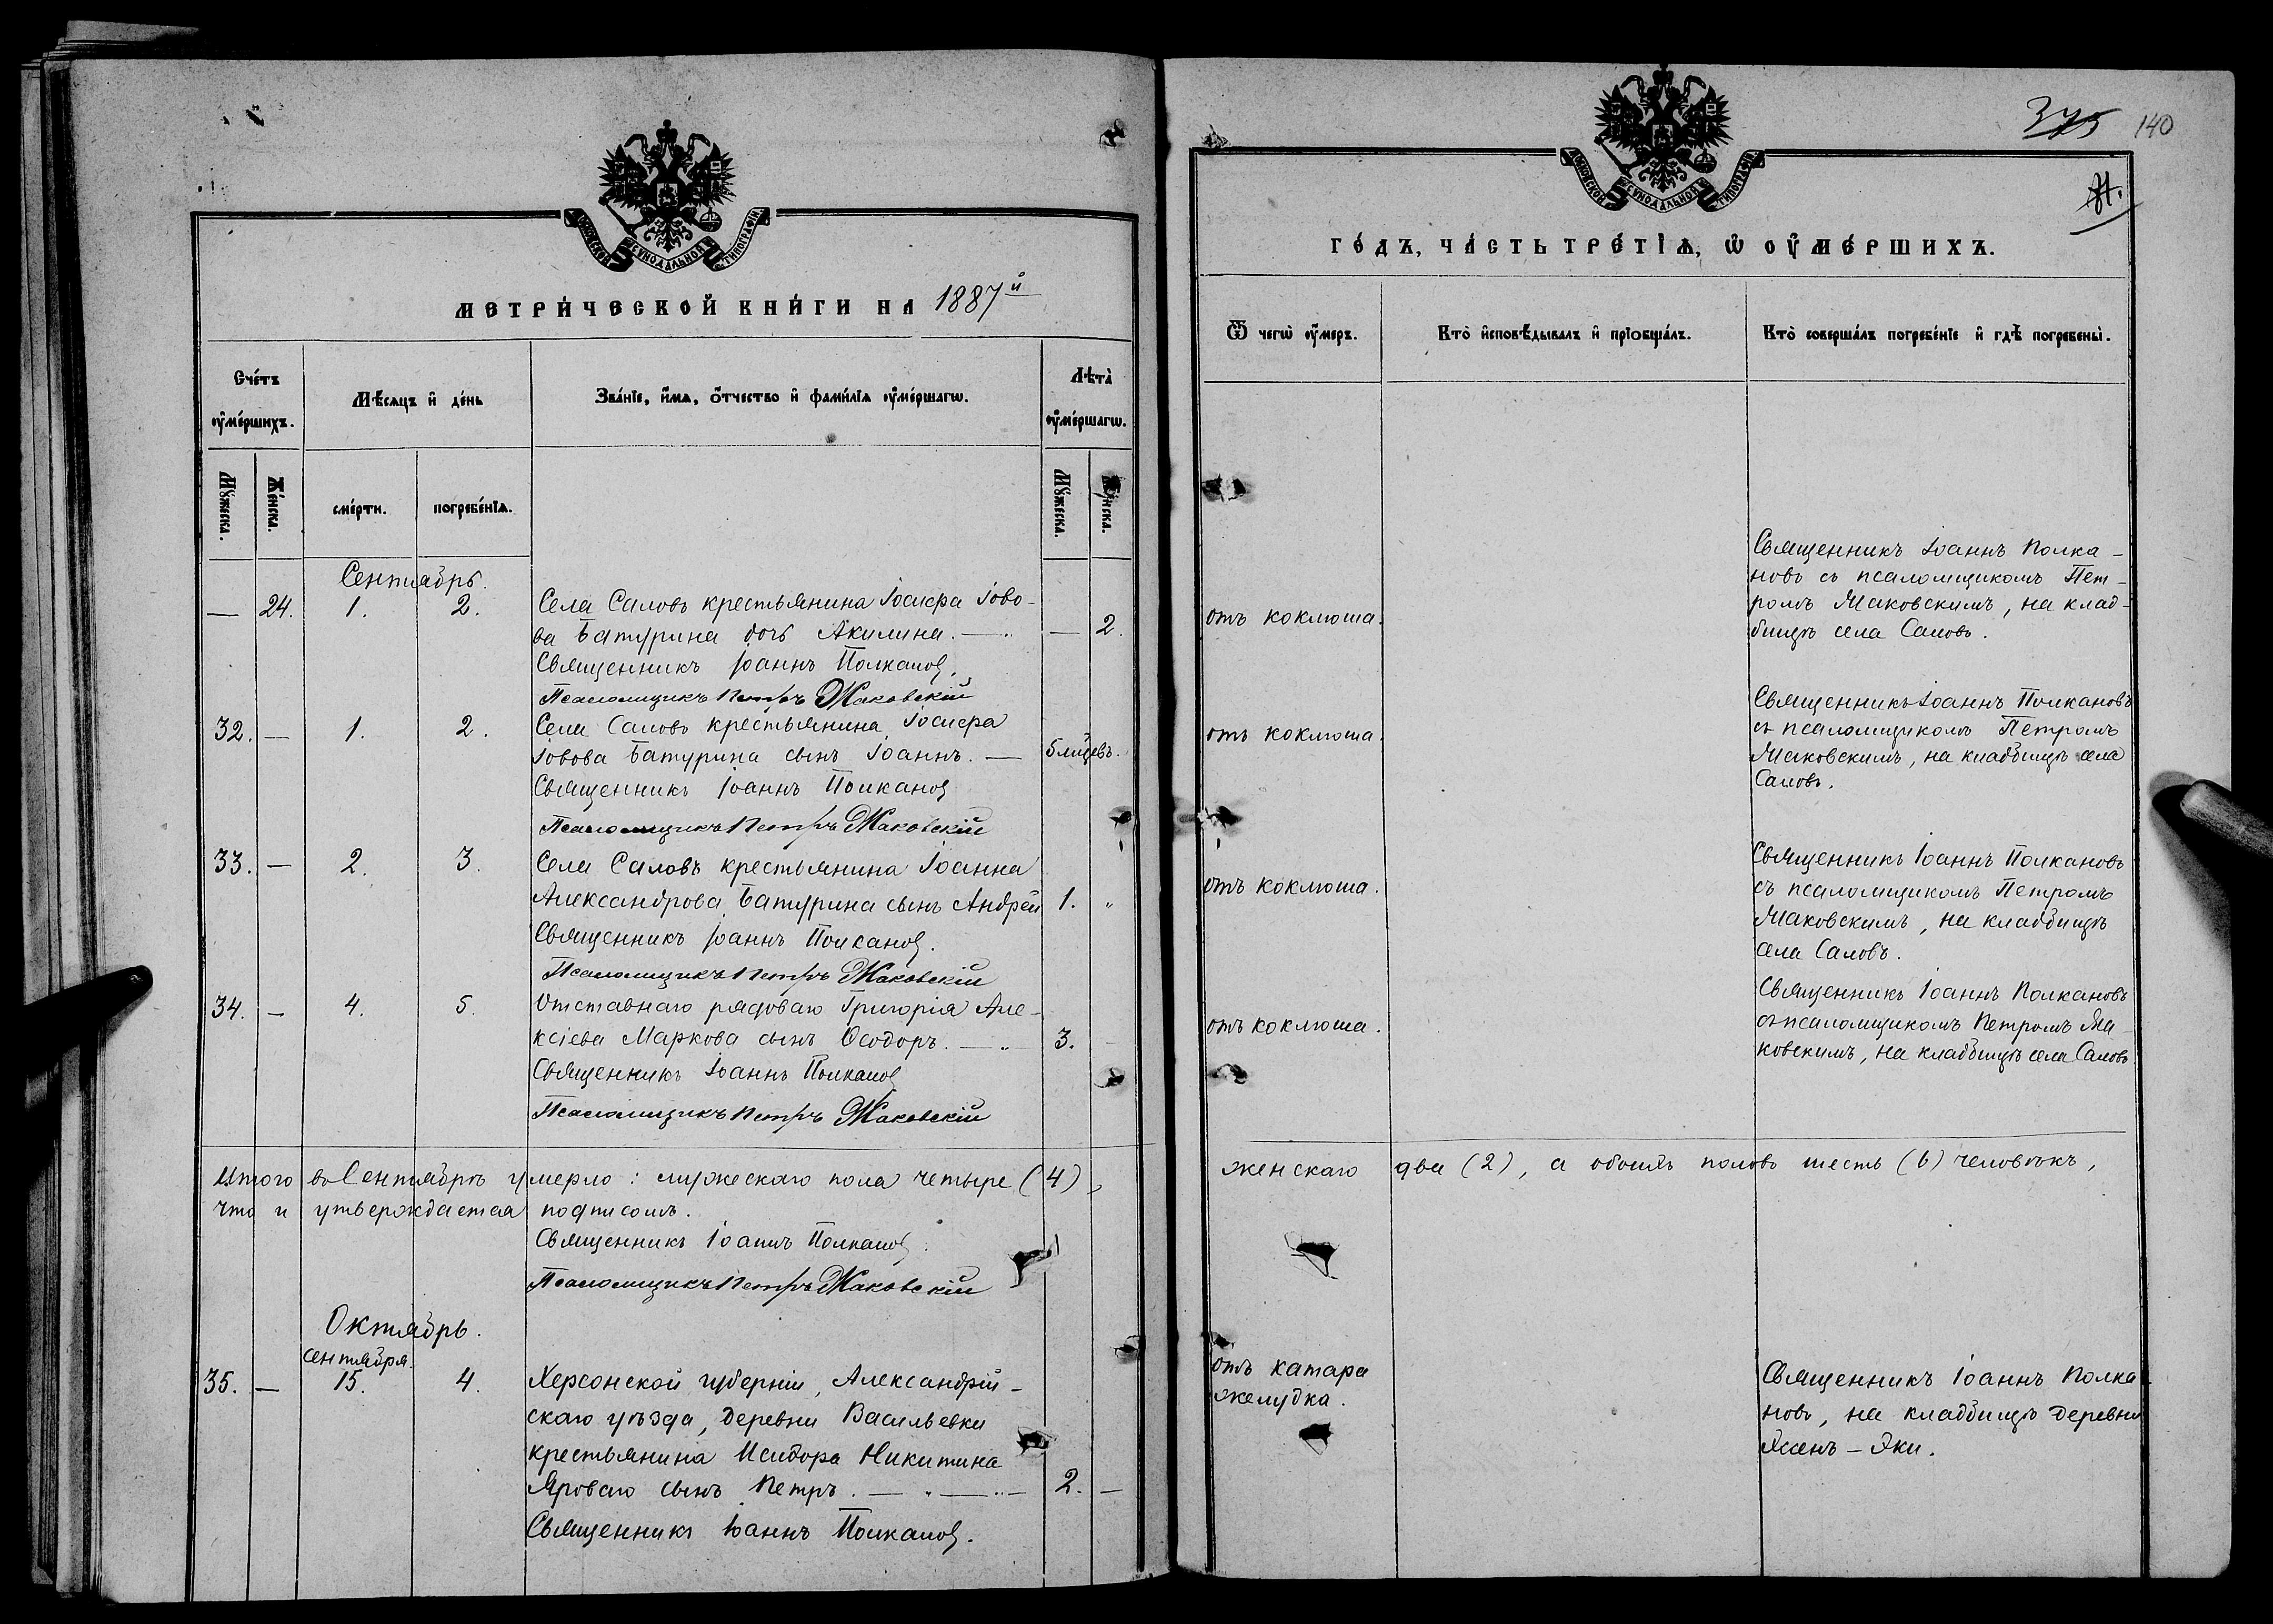 МОСКОВСКОЙ СѴНОДАЛЬНОЙ ТИПОГРАФІИ.
МЕТРИ́ЧЕСКОЙ КНИ́ГИ НА 1887й
Сче́тъ оу҆ме́ршихъ.
Мѣ́сяцъ и҆ де́нь
Зва́нїе, и҆́мѧ, ѻ҆́тчество и҆ фами́лїѧ оу҆ме́ршагѡ.
Лѣта̀ оу҆ме́ршагѡ.
Мꙋ́жеска.
Же́нска.
сме́рти.
погребе́нїѧ.
Мꙋ́жеска.
Же́нска.
Сентябрь.
— 24. 1. 2.
Села Саловъ крестьянина Іосифа Іово-
ва Батурина дочь Акилина. — — 2.
Священникъ Іоаннъ Полканов
Псаломщикъ Петръ Маковскій
32. — 1. 2.
Села Саловъ крестьянина Іосифа
Іовова Батурина сынъ Іоаннъ. — 5 мѣсяцевъ.
Священникъ Іоаннъ Полканов
Псаломщикъ Петръ Маковскій
33. — 2. 3.
Села Саловъ крестьянина Іоанна
Александрова Батурина сынъ Андрей 1. „
Священникъ Іоаннъ Полканов.
Псаломщикъ Петръ Маковскій
34. — 4. 5.
Отставнаго рядоваго Григорія Але-
ксіева Маркова сынъ Ѳеодоръ. — 3. —
Священникъ Іоаннъ Полканов
Псаломщикъ Петръ Маковскій
Итого въ Сентябрѣ умерло: мужескаго пола четыре (4),
что и утверждается подписомъ.
Священникъ Іоаннъ Полканов.
Псаломщикъ Петръ Маковскій
Октябрь.
сентября.
35. — 15. 4.
Херсонской губерніи, Александрій-
скаго уѣзда, деревни Васильевки
крестьянина Исидора Никитина
Яроваго сынъ Петръ. — 2. —
Священникъ Іоаннъ Полканов.
375 140
МОСКОВСКОЙ СѴНОДАЛЬНОЙ ТИПОГРАФІИ.
ГО́ДЪ, ЧА́СТЬ ТРЕ́ТЇѦ, Ѡ҆ ОУ҆МЕ́РШИХЪ.
Ѿ чегѡ̀ оу҆́меръ.
Кто̀ и҆сповѣ́дывалъ и҆ прїобща́лъ.
Кто̀ соверша́лъ погребе́нїе и҆ гдѣ̀ погребены̀.
отъ коклюша.
Священникъ Іоаннъ Полка-
новъ съ псаломщикомъ Пет-
ромъ Маковскимъ, на клад-
бищѣ села Саловъ.
отъ коклюша.
Священникъ Іоаннъ Полкановъ
съ псаломщикомъ Петромъ
Маковскимъ, на кладбищѣ села
Саловъ.
отъ коклюша.
Священникъ Іоаннъ Полкановъ
съ псаломщикомъ Петромъ
Маковскимъ, на кладбищѣ
села Саловъ.
отъ коклюша.
Священникъ Іоаннъ Полкановъ
съ псаломщикомъ Петромъ Ма-
ковскимъ, на кладбищѣ села Саловъ
женскаго два (2), а обоихъ половъ шесть (6) человѣкъ,
отъ катара
желудка.
Священникъ Іоаннъ Полка-
новъ, на кладбищѣ деревни